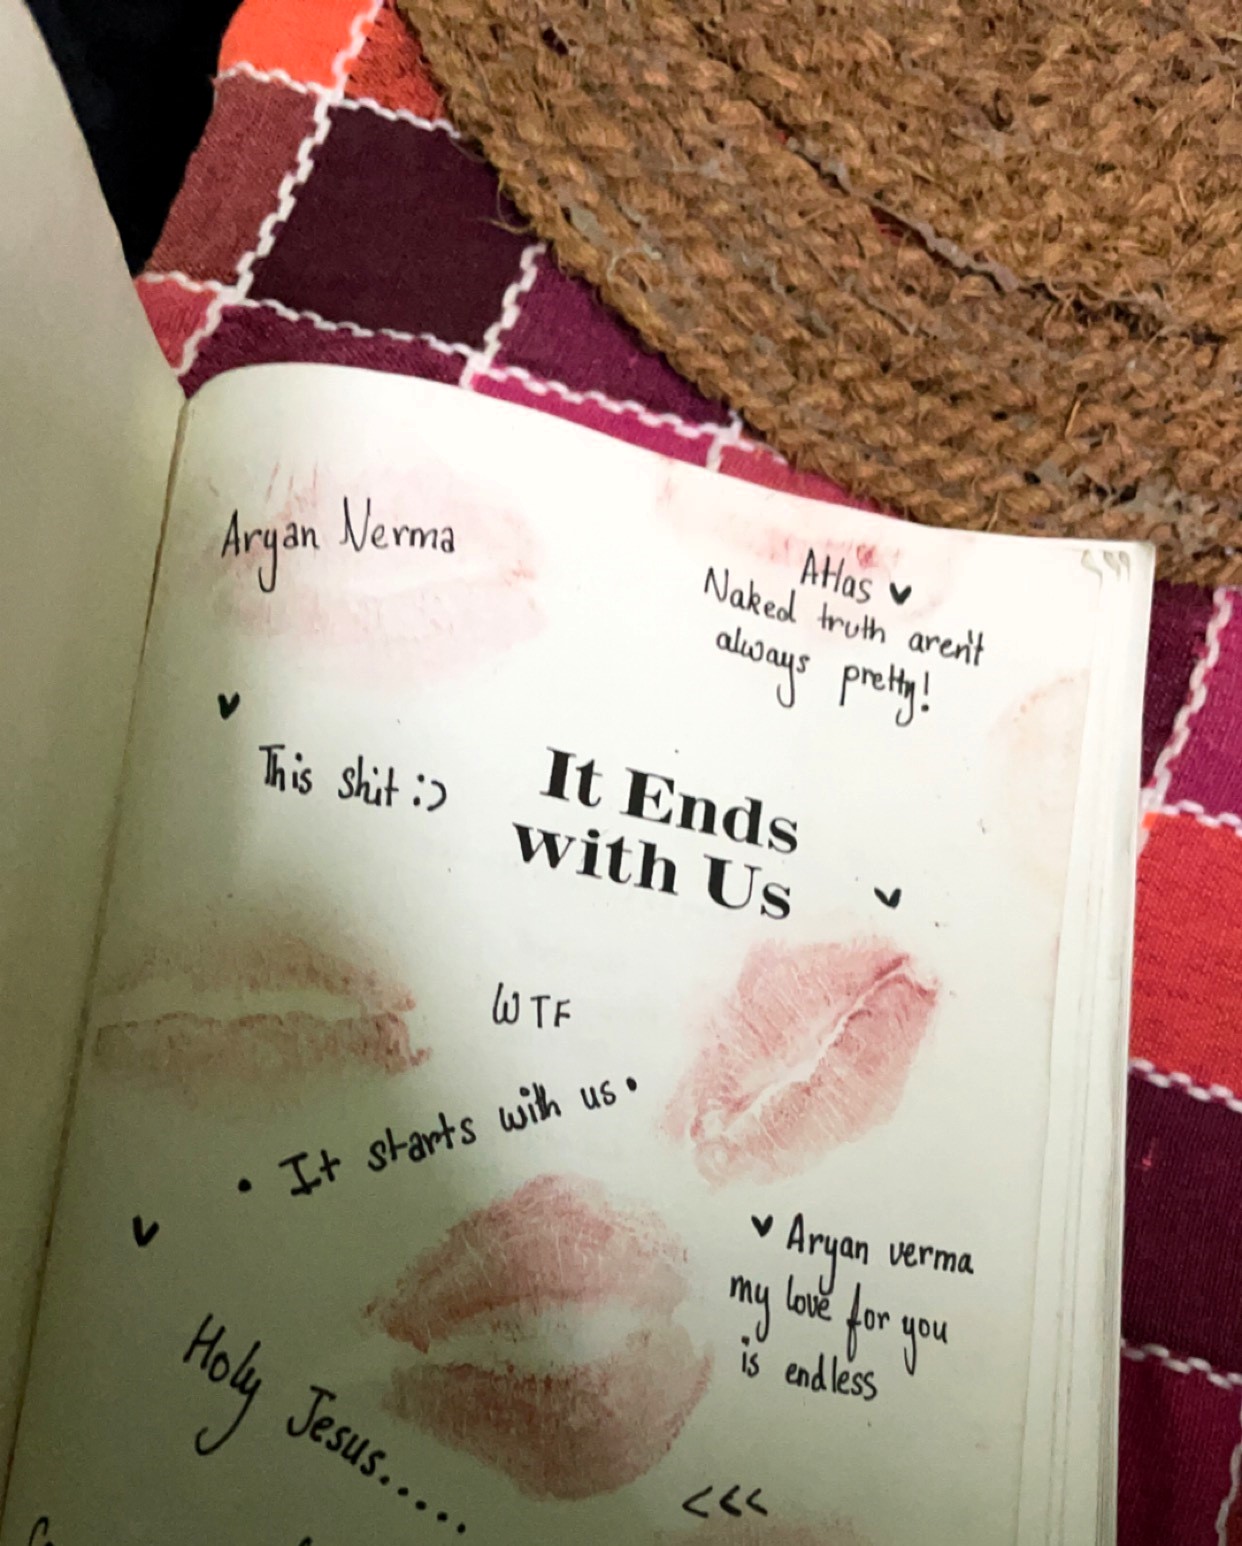 Aryan Nerma
Atlas
Naked truth aren't
always pretty!
This shit :)
It Ends
with Us
WTF
• It starts with us •
Aryan verma
my love for you
is endless
Holy Jesus.....
<<<